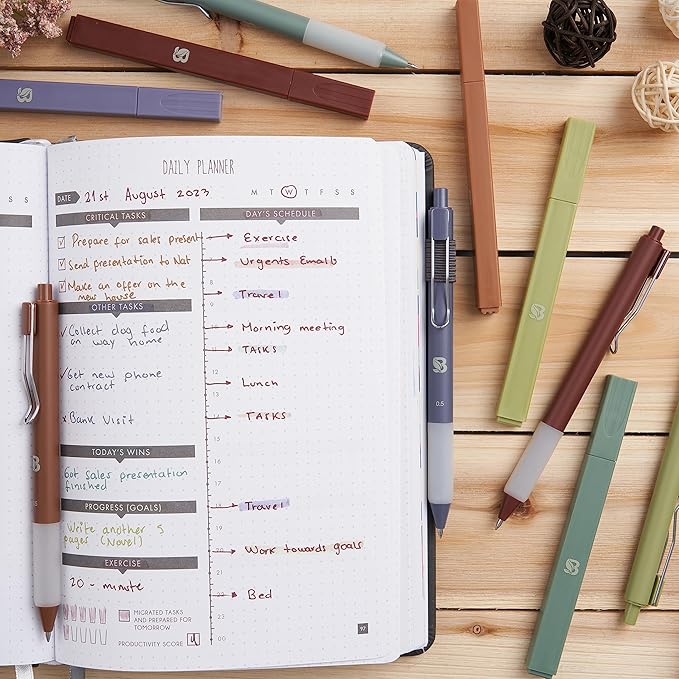 DAILY PLANNER
DATE 21st August 2023
M T W T F S S
CRITICAL TASKS
Prepare for sales present
Send presentation to Nat
Make an offer on the
new house
OTHER TASKS
Collect dog food
on way home
Get new phone
contract
x Bank Visit
TODAY'S WINS
Got sales presentation
finished
PROGRESS (GOALS)
Write another 5
pages (Novel)
EXERCISE
20 - minute
MIGRATED TASKS
AND PREPARED FOR
TOMORROW
PRODUCTIVITY SCORE 4
DAY'S SCHEDULE
Exercise
Urgents Emails
Travel
Morning meeting
TASKS
Lunch
TASKS
Travel
Work towards goals
Bed
97
S S
0.5